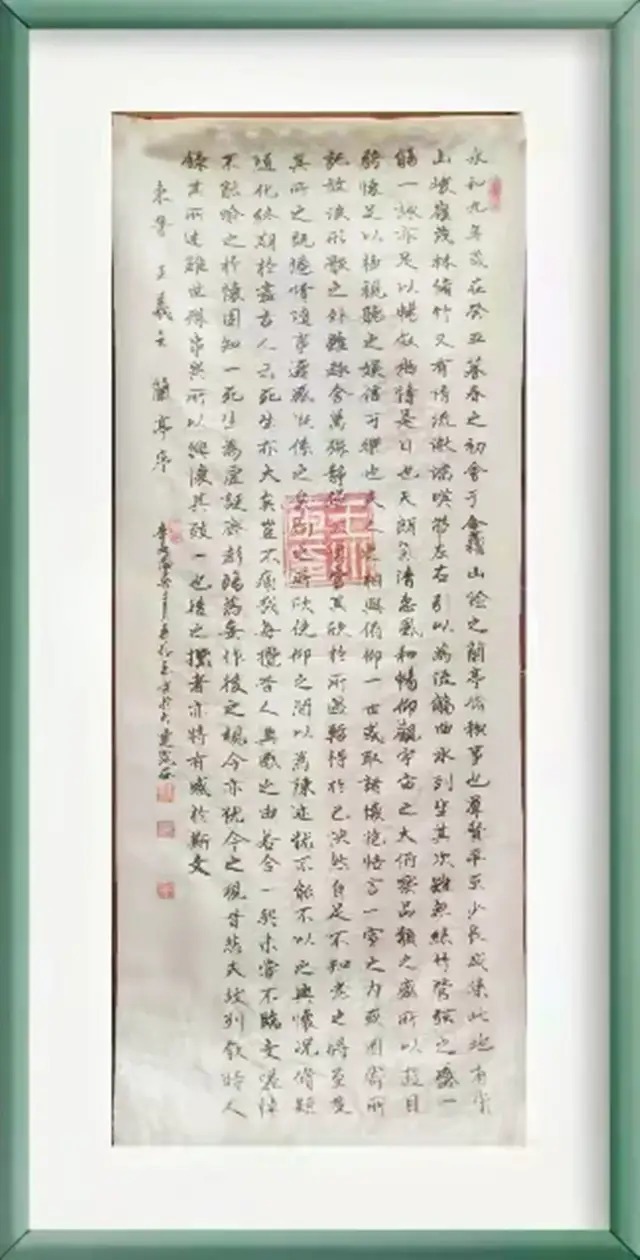 永和九年歲在癸丑暮春之初會于會稽山陰之蘭亭脩稧事也羣賢畢至少長咸集此地有崇
山峻嶺茂林脩竹又有清流激湍映帶左右引以為流觴曲水列坐其次雖無絲竹管弦之盛一
觴一詠亦足以暢敘幽情是日也天朗氣清惠風和暢仰觀宇宙之大俯察品類之盛所以遊目
騁懷足以極視聽之娛信可樂也夫人之相與俯仰一世或取諸懷抱悟言一室之內或因寄所
託放浪形骸之外雖趣舍萬殊靜躁不同當其欣於所遇暫得於己怏然自足不知老之將至及
其所之既惓情隨事遷感慨係之矣向之所欣俛仰之間以為陳迹猶不能不以之興懷況脩短
隨化終期於盡古人云死生亦大矣豈不痛哉每攬昔人興感之由若合一契未嘗不臨文嗟悼
不能喻之於懷固知一死生為虛誕齊彭殤為妄作後之視今亦猶今之視昔悲夫故列敘時人
錄其所述雖世殊事異所以興懷其致一也後之攬者亦將有感於斯文
東晉王羲之 蘭亭序